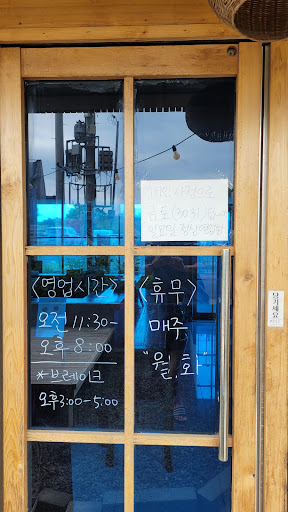 개인 사정으로
<영업시간>
오전 11:30-
오후 8:00
*브레이크
오후3:00-5:00
<휴무>
매주
"월,화"
당기세요